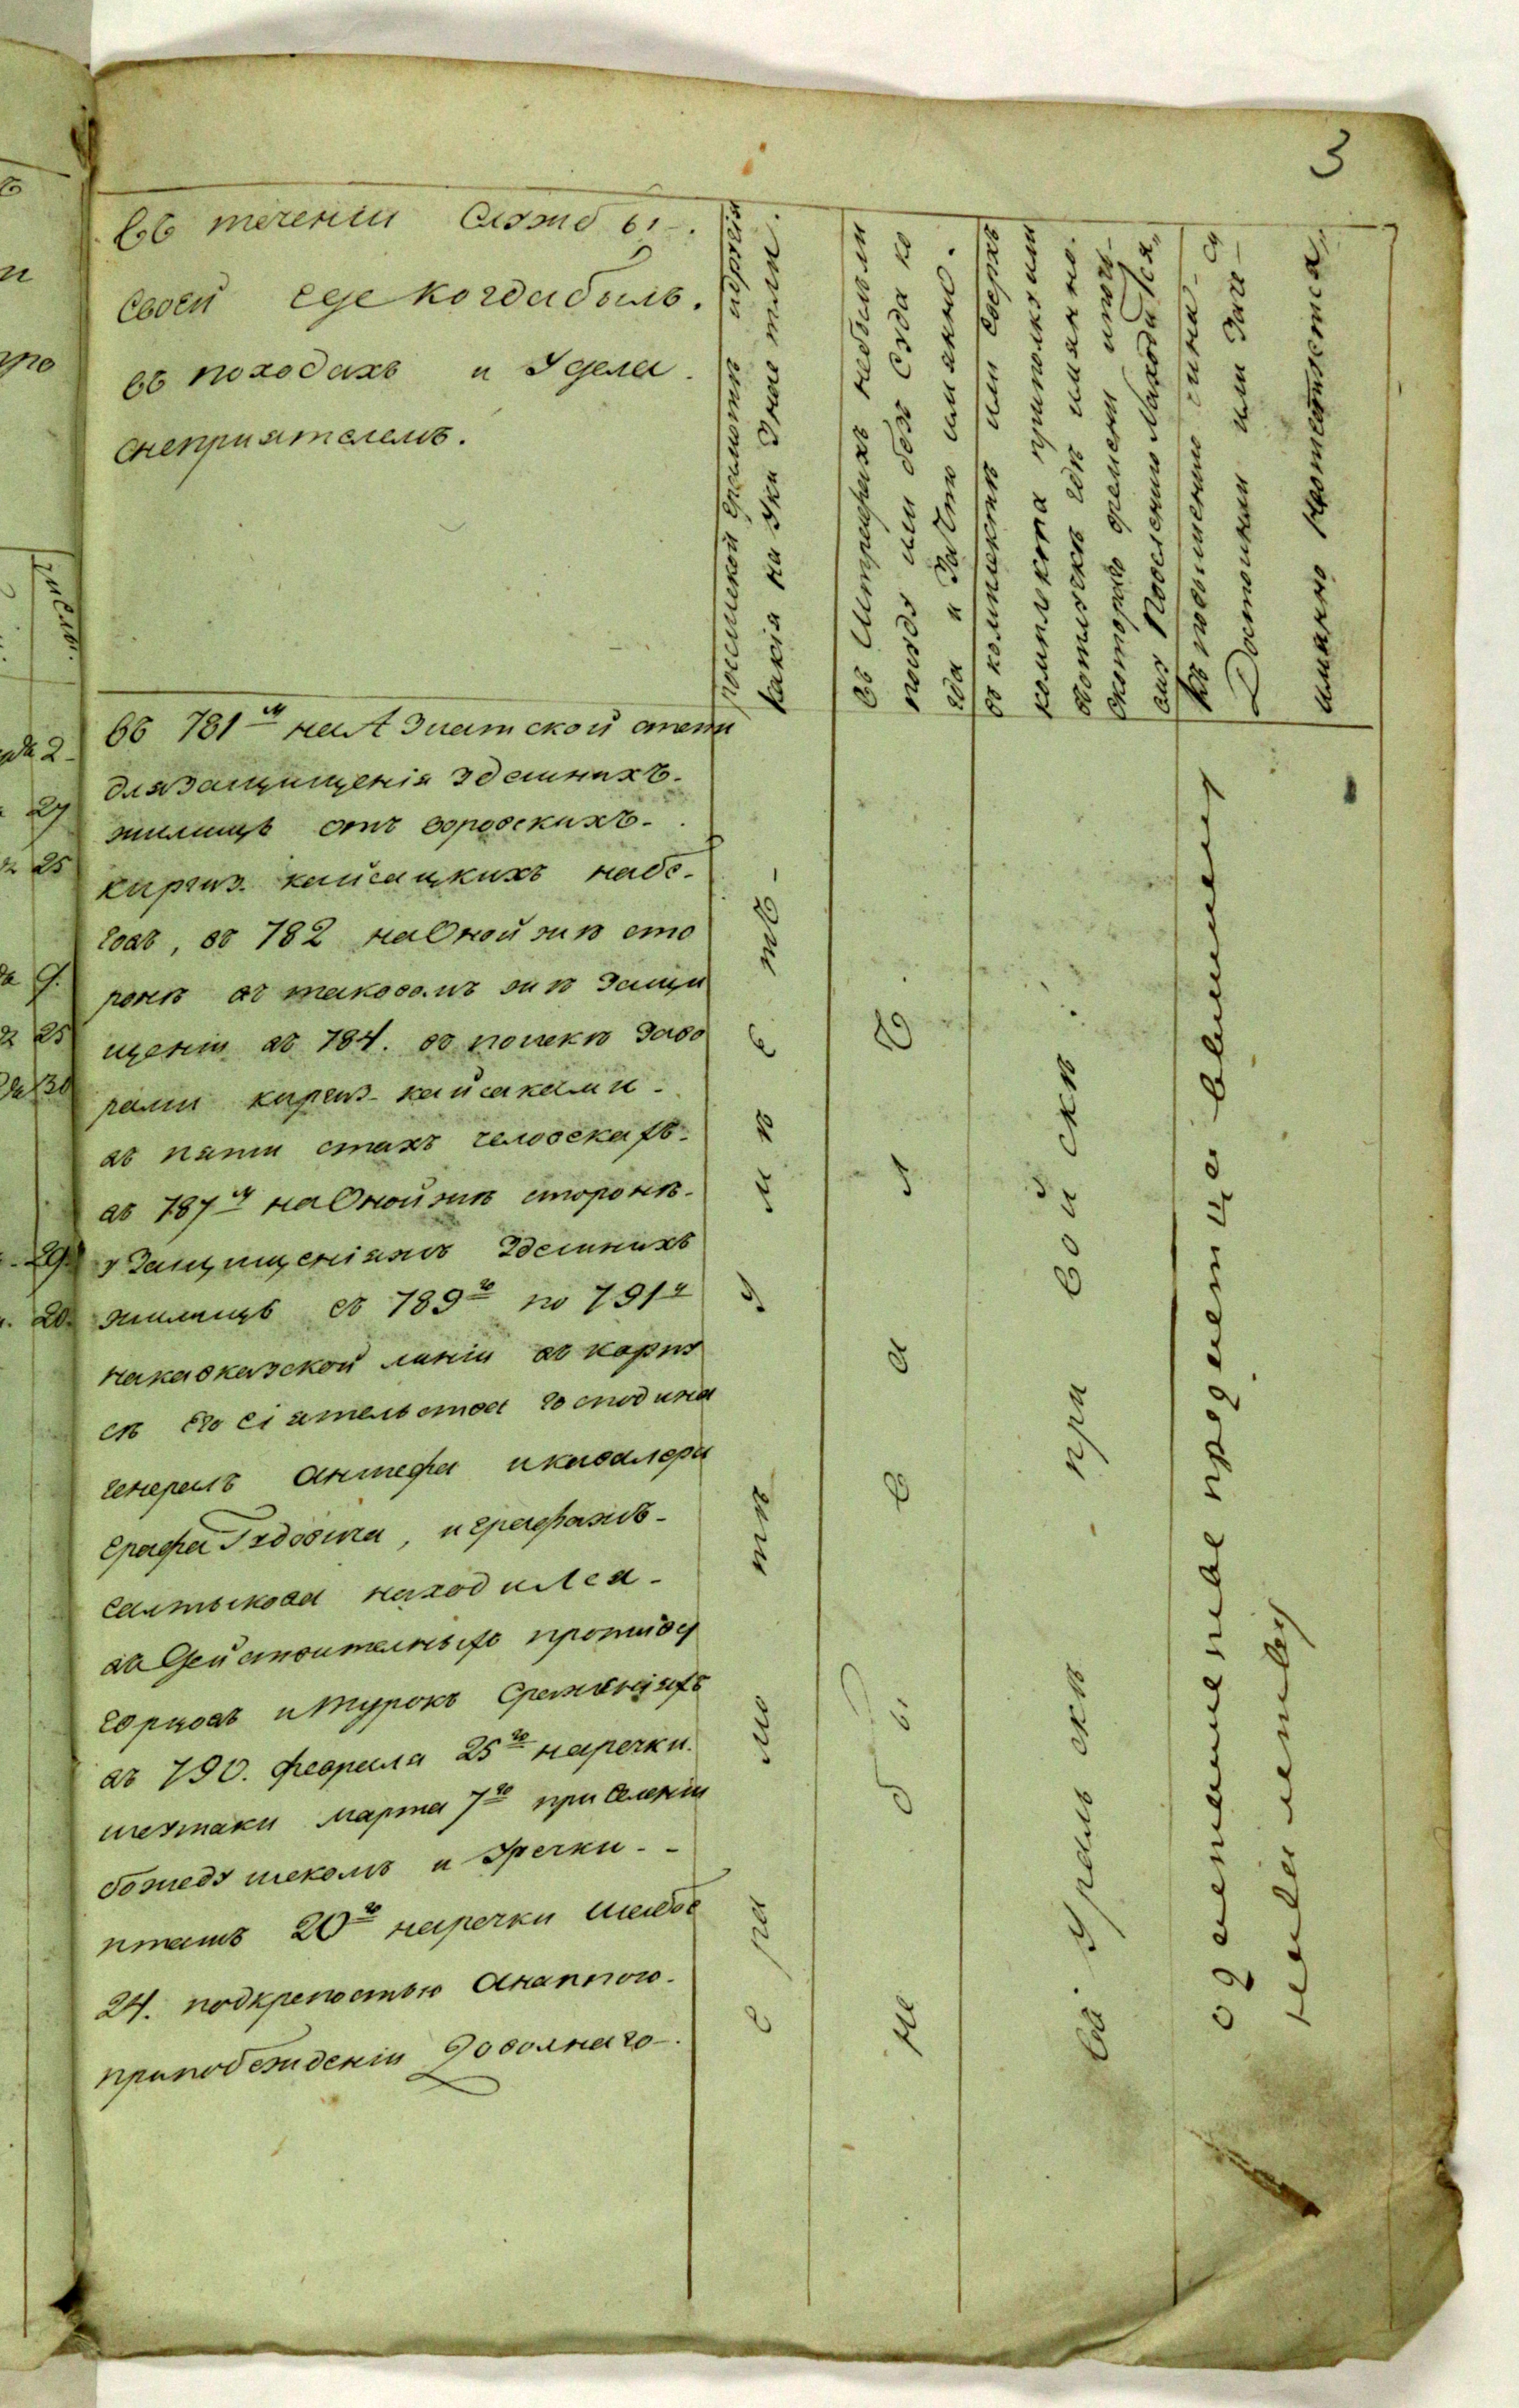 3
Въ теченіи Службы
своей где когдабылъ
въ походахъ и Удела
снеприятелемъ.
россииской грамоте
какія науки знае тли.
въ штрафахъ небылъли
посуду или без Суда ко
гда и Зачто имянно.
въ комплекте или сверхъ
комплекта приполкули
вотлучке где имянно.
скоторого времени
Къ повышению чина
Достоинъ или Заче
имянно неаттестуется
въ 781м наАзиатской степи
длязащищенія здешнихъ
жилищъ отъ воровскихъ
киргиз кайсацкихъ набе
говъ, въ 782 наОнойже сто
роне въ таковомъ же защи
щеніи въ 784. въ поиске за во
рами киргиз кайсаками
въ пяти стахъ человекахъ
въ 787м наОнойже стороне
узащищеніяхъ здешнихъ
жилищъ съ 789го по 791й
накавказской линіи въ корпу
се Его Сіятельства господина
генералъ аншефа икавалера
графа Гудовича, играфажъ
салтыкова находился
въ действителныхъ противу
горцовъ итурокъ сраженіяхъ
въ 790. февраля 25го наречки
шехтаки марта 7го при Селеніи
божедушекомъ и Уречки
пташъ 20го наречки шебсъ
24. подкрепостью анапою
припобежденіи Доволнаго
грамоте умеетъ
не бывалъ
въ Уральске при войске